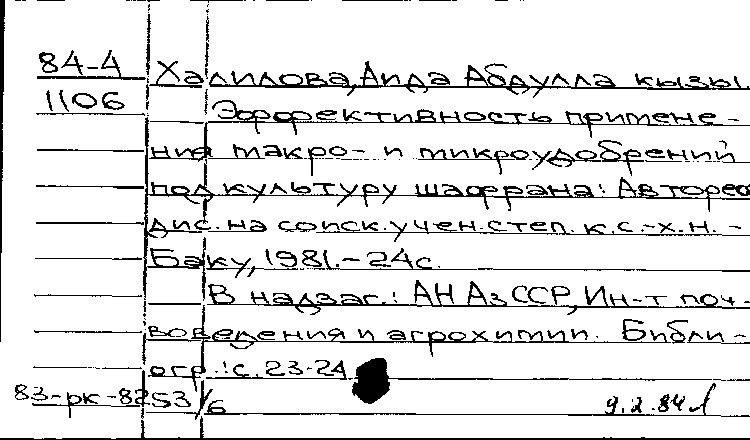 84-4
1106
Халилова, Аида Абдулла кызы.
Эффективность примене-
ния макро- и микроудобрений
под культуру шафрана: Автореф
дис. на соиск. учен. степ. к. с.-х. н. -
Баку, 1981. - 24с.
В надзаг.: АН АзССР, Ин-т поч-
воведения и агрохимии. Библи-
огр.: с. 23-24
83-рк-8253/6
9.2.84